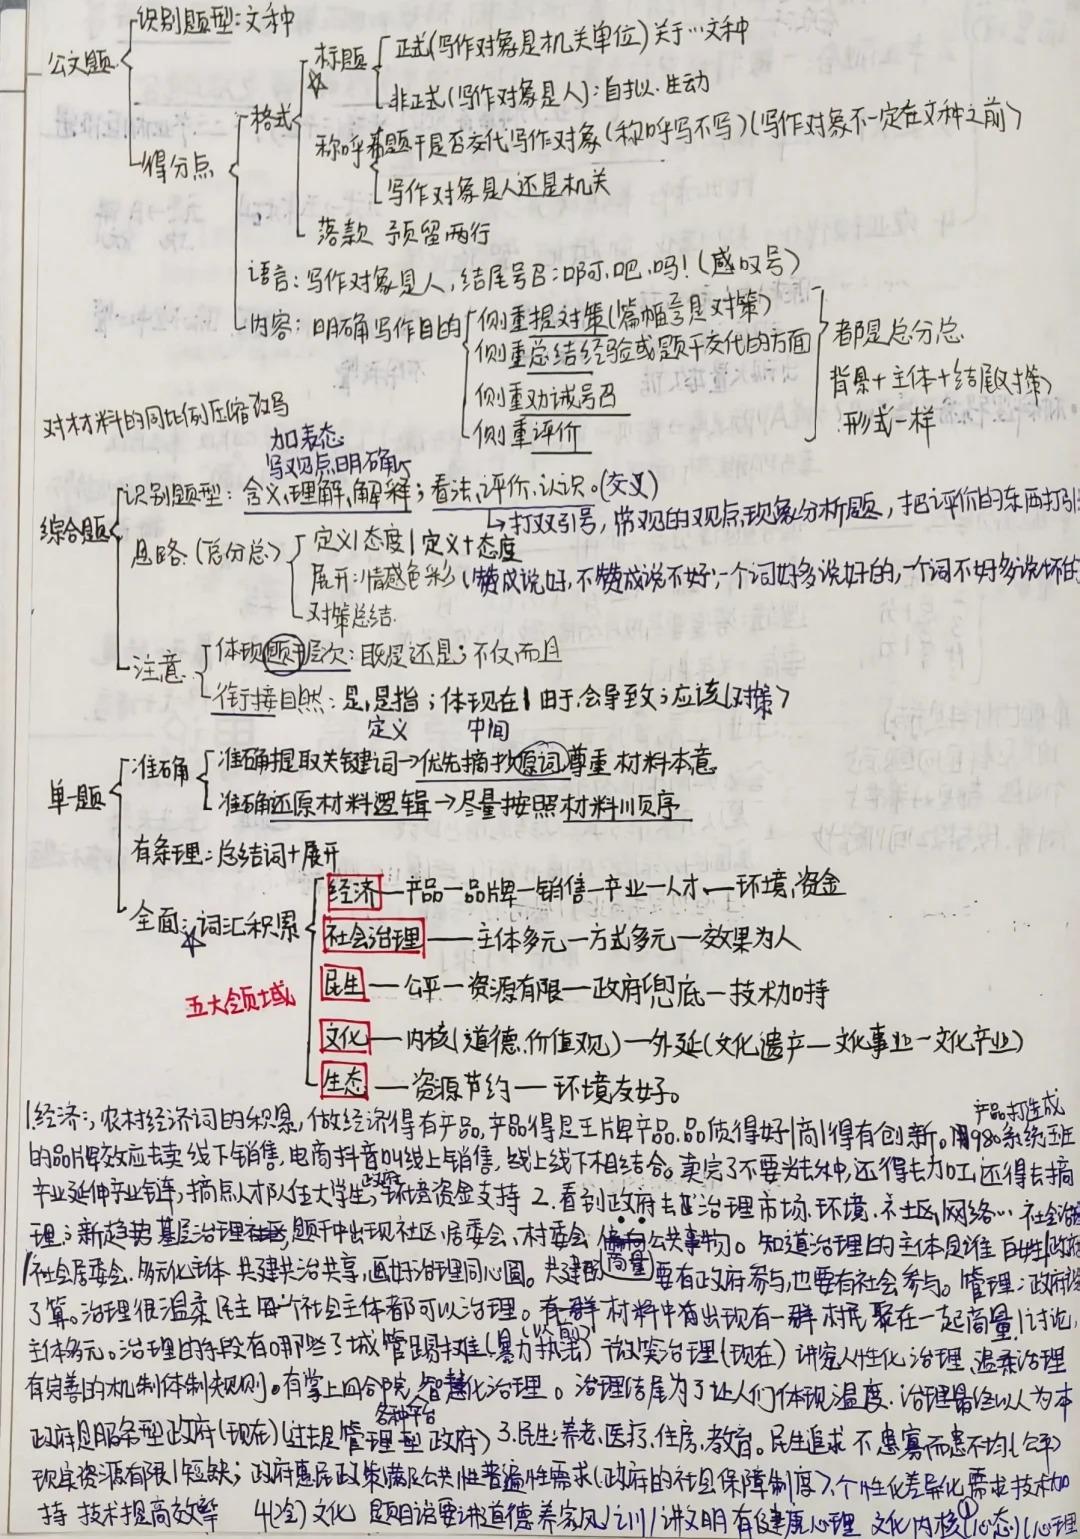 公文题
识别题型：文种
得分点
格式
标题
正式(写作对象是机关单位)关于…文种
非正式(写作对象是人)：自拟.生动
称呼看题干是否交代写作对象(称呼写不写)(写作对象不一定在文种之前)
写作对象是人还是机关
落款 预留两行
语言：写作对象是人,结尾号召：啊,吧,吗!(感叹号)
内容：明确写作目的
侧重提对策(篇幅多是对策)
侧重总结经验或题干交代的方面
侧重劝诫号召
侧重评价
都是总分总
背景+主体+结尾(对策)
形式一样
对材料的同比例压缩改写
加表态
写观点明确
综合题
识别题型：含义,理解,解释；看法,评价,认识。(交叉)
打双引号，常观的观点现象分析题，把评价的东西打引
思路(总分总)
定义|态度|定义+态度
展开：情感色彩(赞成说好,不赞成说不好,一个词好多说好的,一个词不好多说坏的
对策总结.
注意
体现题干层次：既是还是；不仅而且
衔接自然：是,是指；体现在|由于,会导致；应该(对策)
定义 中间
单一题
准确
准确提取关键词→优先摘抄原词尊重材料本意
准确还原材料逻辑→尽量按照材料顺序
有条理：总结词+展开
全面：词汇积累
五大领域
经济—产品—品牌—销售—产业—人才—环境,资金
社会治理——主体多元—方式多元—效果为人
民生—公平—资源有限—政府兜底—技术加持
文化—内核(道德,价值观)—外延(文化遗产—文化事业—文化产业)
生态——资源节约—环境友好。
产品打造成
1经济：农村经济词的积累,做经济得有产品,产品得是王牌产品.品质得好|商|得有创新。用980系统班
的品牌效应去卖线下销售,电商抖音叫线上销售,线上线下相结合。卖完了不要光去种,还得去加工,还得去搞
政府
产业延伸产业链,搞点人才队伍大学生,环境资金支持 2.看到政府去治理市场.环境.社区网络… 社会治
理：新趋势基层治理,题干中出现社区,居委会、村委会 公共事物。知道治理的主体是谁 百姓|政府
商量
|社会居委会.多元化主体 共建共治共享,画好治理同心圆。共建 要有政府参与,也要有社会参与。管理：政府
了算。治理很温柔民主每个社会主体都可以治理。材料中有出现有一群村民聚在一起商量|讨论,
(以前)
主体多元。治理的手段有哪些了城管踢摊(暴力执法) 微笑治理(现在) 讲究人性化治理,温柔治理
有完善的机制体制规则。有掌上四合院,智慧化治理。治理结尾为了让人们体现温度.治理最终以人为本
各种平台
政府是服务型政府(现在)(过去是管理型政府) 3.民生：养老,医疗,住房,教育。民生追求不患寡而患不均(公平)
现实资源有限|短缺；政府惠民政策满足公共性普遍性需求(政府的社会保障制度),个性化差异化需求技术加
持 技术提高效率 4(全)文化 题目说要讲道德养家风|川|讲文明有健康心理 文化内核①(心态)(心理